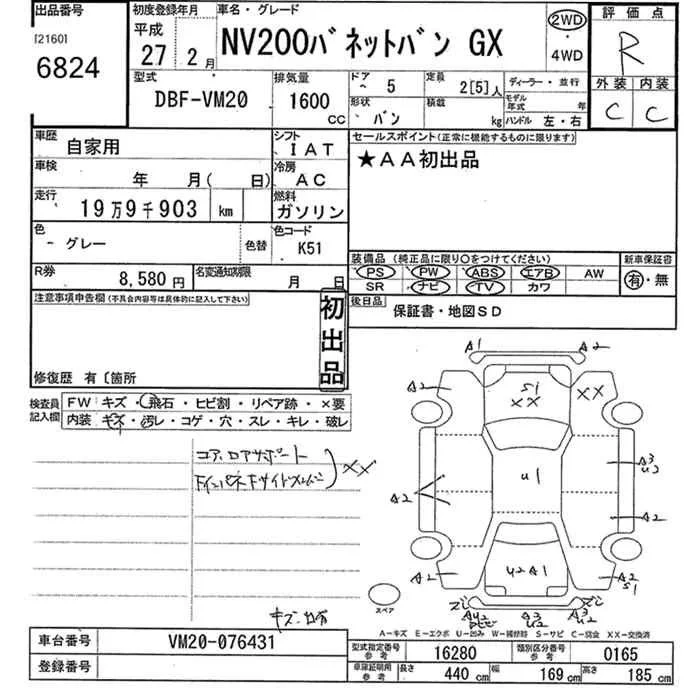 出品番号
[2160]
6824
初度登録年月
平成
27年 2月
車名・グレード
NV200バネットバン GX
2WD
・
4WD
評価点
R
外装 内装
C C
型式
DBF-VM20
排気量
1600
CC
ドア
5
形状
バン
定員
2[5]人
積載
kg
ディーラー・並行
モデル年式 年
ハンドル 左・右
車歴
自家用
シフト
IAT
車検
年 月( 日)
冷房
AC
走行
19万9千903 km
燃料
ガソリン
色
グレー
色替
色コード
K51
R券
8,580円
名変通知期限
月 日
セールスポイント(正常に機能するものに限ります)
★AA初出品
装備品(純正品に限り〇をつけてください)
PS PW ABS エアB AW
SR ナビ TV カワ
新車保証書
有・無
後日品
保証書・地図SD
注意事項申告欄(不具合内容等は具体的に記入して下さい)
初出品
修復歴 有〔箇所
検査員記入欄
FW キズ・飛石・ヒビ割・リペア跡・×要
内装 キズ・汚レ・コゲ・穴・スレ・キレ・破レ
コアロアサポート
XX
キズ
A1 A2
A2 S1 XX XX
A2 U1 A3 U2
A2
A2 U2A1 A2 S1
スペア
A3 U2 A3 U2
A−キズ E−エクボ U−凹み W−補修跡 S−サビ C−腐食 XX−交換済
車台番号
VM20-076431
登録番号
型式指定番号 参考
16280
類別区分番号 参考
0165
車庫証明用 参考
長さ 440 cm 幅 169 cm 高さ 185 cm